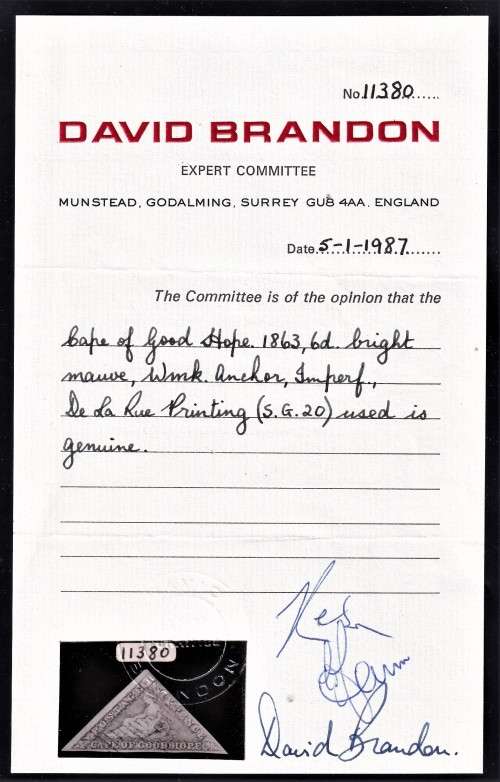 No. 11380
DAVID BRANDON
EXPERT COMMITTEE
MUNSTEAD, GODALMING, SURREY GU8 4AA, ENGLAND
Date 5-1-1987
The Committee is of the opinion that the
Cape of Good Hope. 1863, 6d. bright
mauve, Wmk. Anchor, Imperf.,
De La Rue Printing (S.G.20) used is
genuine.
11380
CAPE OF GOOD HOPE
David Brandon.